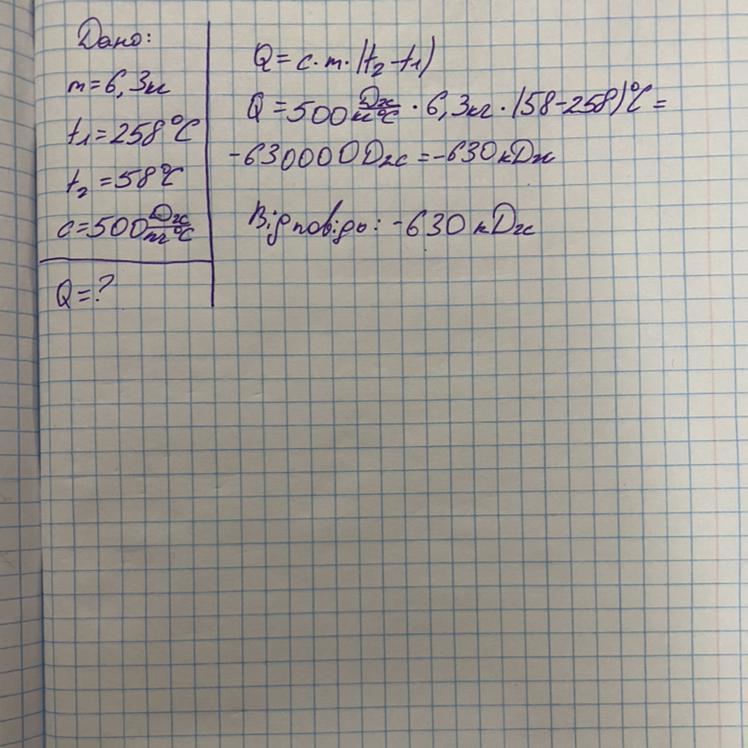 Дано:
m=6,3кг
t₁=258°C
t₂=58°C
c=500 Дж/кг°C
Q=?
Q=c·m·(t₂-t₁)
Q=500 Дж/кг°C · 6,3кг · (58-258)°C =
-630000 Дж = -630 кДж
Відповідь: -630 кДж